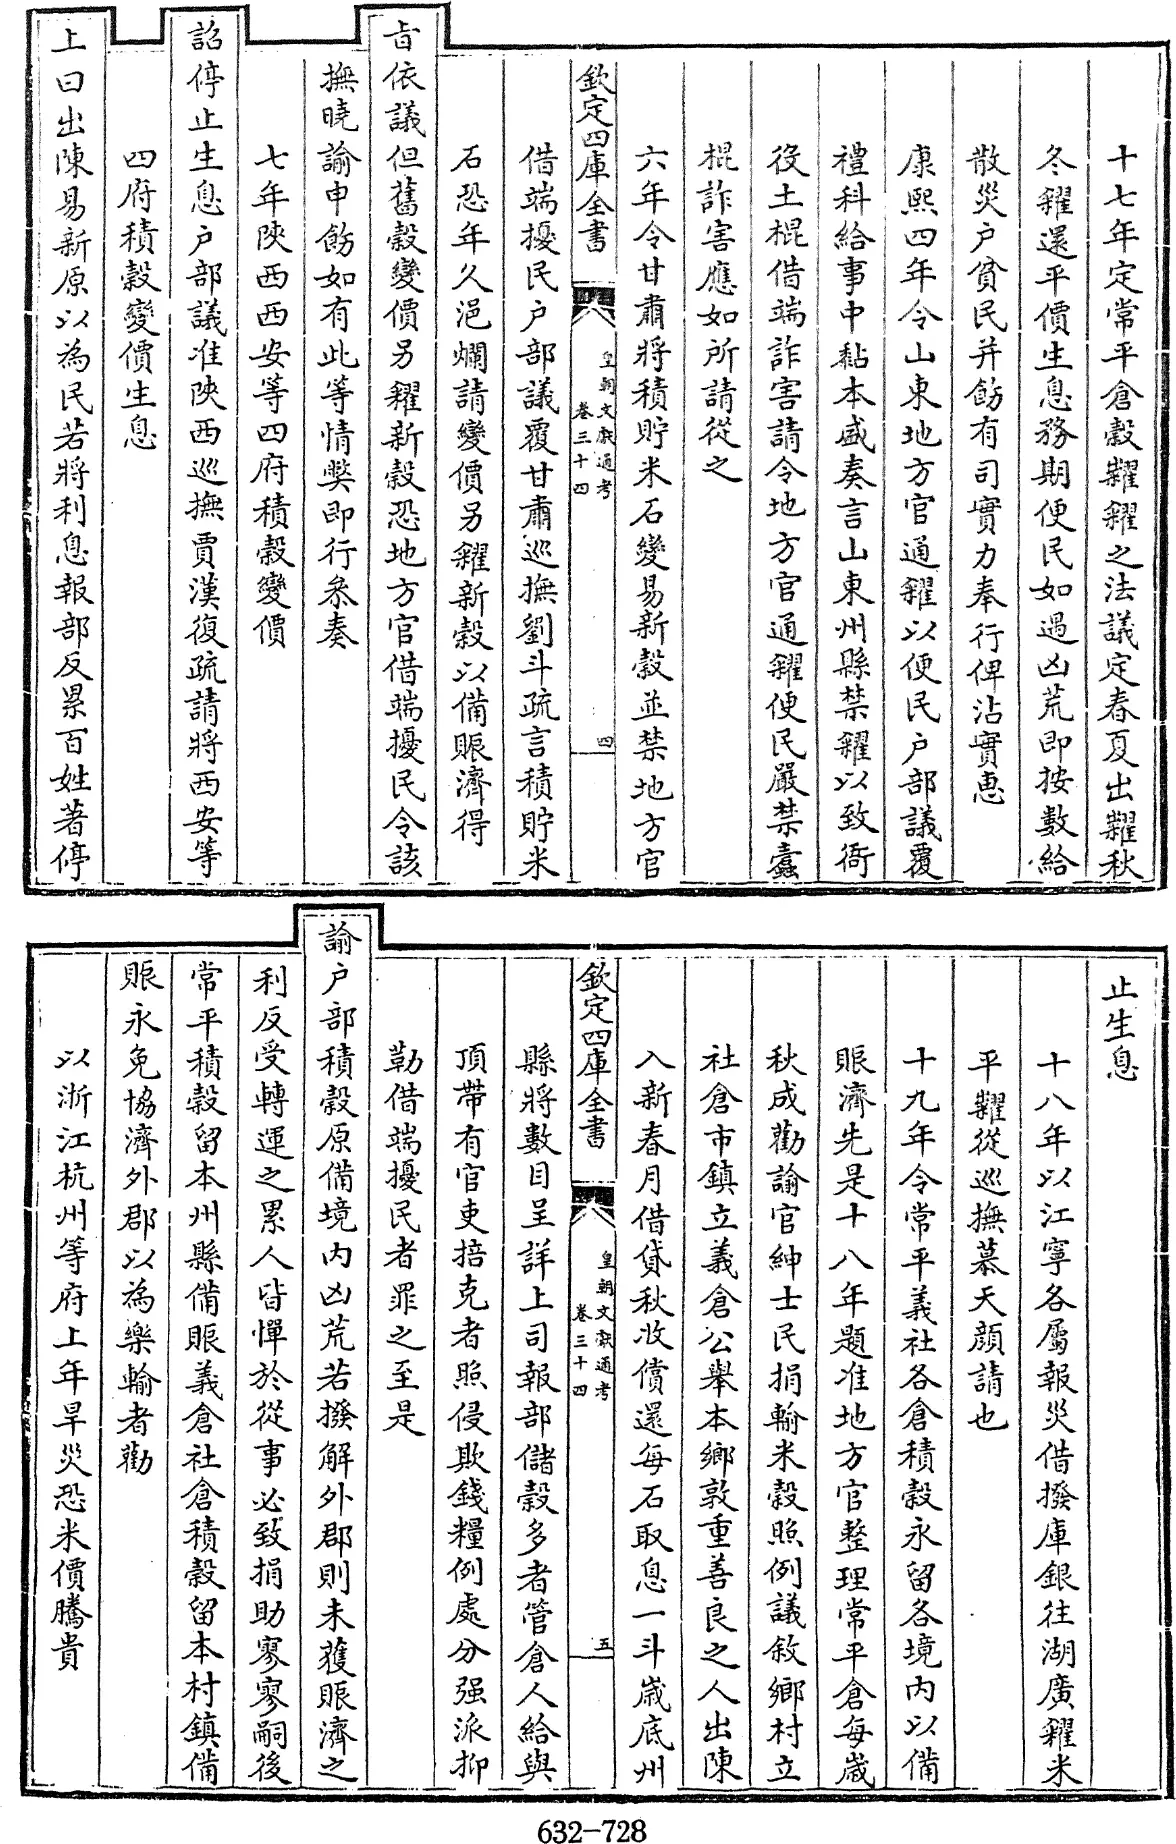 十七年定常平倉穀糶糴之法議定春夏出糶秋
冬糴還平價生息務期便民如遇凶荒即按數給
散災户貧民并飭有司實力奉行俾沾實惠
康熙四年令山東地方官通糴以便民户部議覆
禮科給事中黏本盛奏言山東州縣禁糴以致衙
役土棍借端詐害請令地方官通糴便民嚴禁蠹
棍詐害應如所請從之
六年令甘肅將積貯米石變易新穀並禁地方官
欽定四庫全書
皇朝文獻通考
卷三十四
四
借端擾民户部議覆甘肅巡撫劉斗疏言積貯米
石恐年久浥爛請變價另糴新穀以備賑濟得
旨依議但舊穀變價另糴新穀恐地方官借端擾民令該
撫曉諭申飭如有此等情弊即行叅奏
七年陜西西安等四府積穀變價
詔停止生息户部議准陜西巡撫賈漢復疏請將西安等
四府積穀變價生息
上曰出陳易新原以為民若將利息報部反累百姓著停
止生息
十八年以江寧各屬報災借撥庫銀往湖廣糴米
平糶從巡撫慕天顔請也
十九年令常平義社各倉積穀永留各境内以備
賑濟先是十八年題准地方官整理常平倉每嵗
秋成勸諭官紳士民捐輸米穀照例議敘鄉村立
社倉市鎮立義倉公舉本鄉敦重善良之人出陳
入新春月借貸秋收償還每石取息一斗嵗底州
欽定四庫全書
皇朝文獻通考
卷三十四
五
縣將數目呈詳上司報部儲穀多者管倉人給與
頂帶有官吏掊克者照侵欺錢糧例處分强派抑
勒借端擾民者罪之至是
諭户部積穀原備境内凶荒若撥解外郡則未獲賑濟之
利反受轉運之累人皆憚於從事必致捐助寥寥嗣後
常平積穀留本州縣備賑義倉社倉積穀留本村鎮備
賑永免協濟外郡以為樂輸者勸
以浙江杭州等府上年旱災恐米價騰貴
632-728